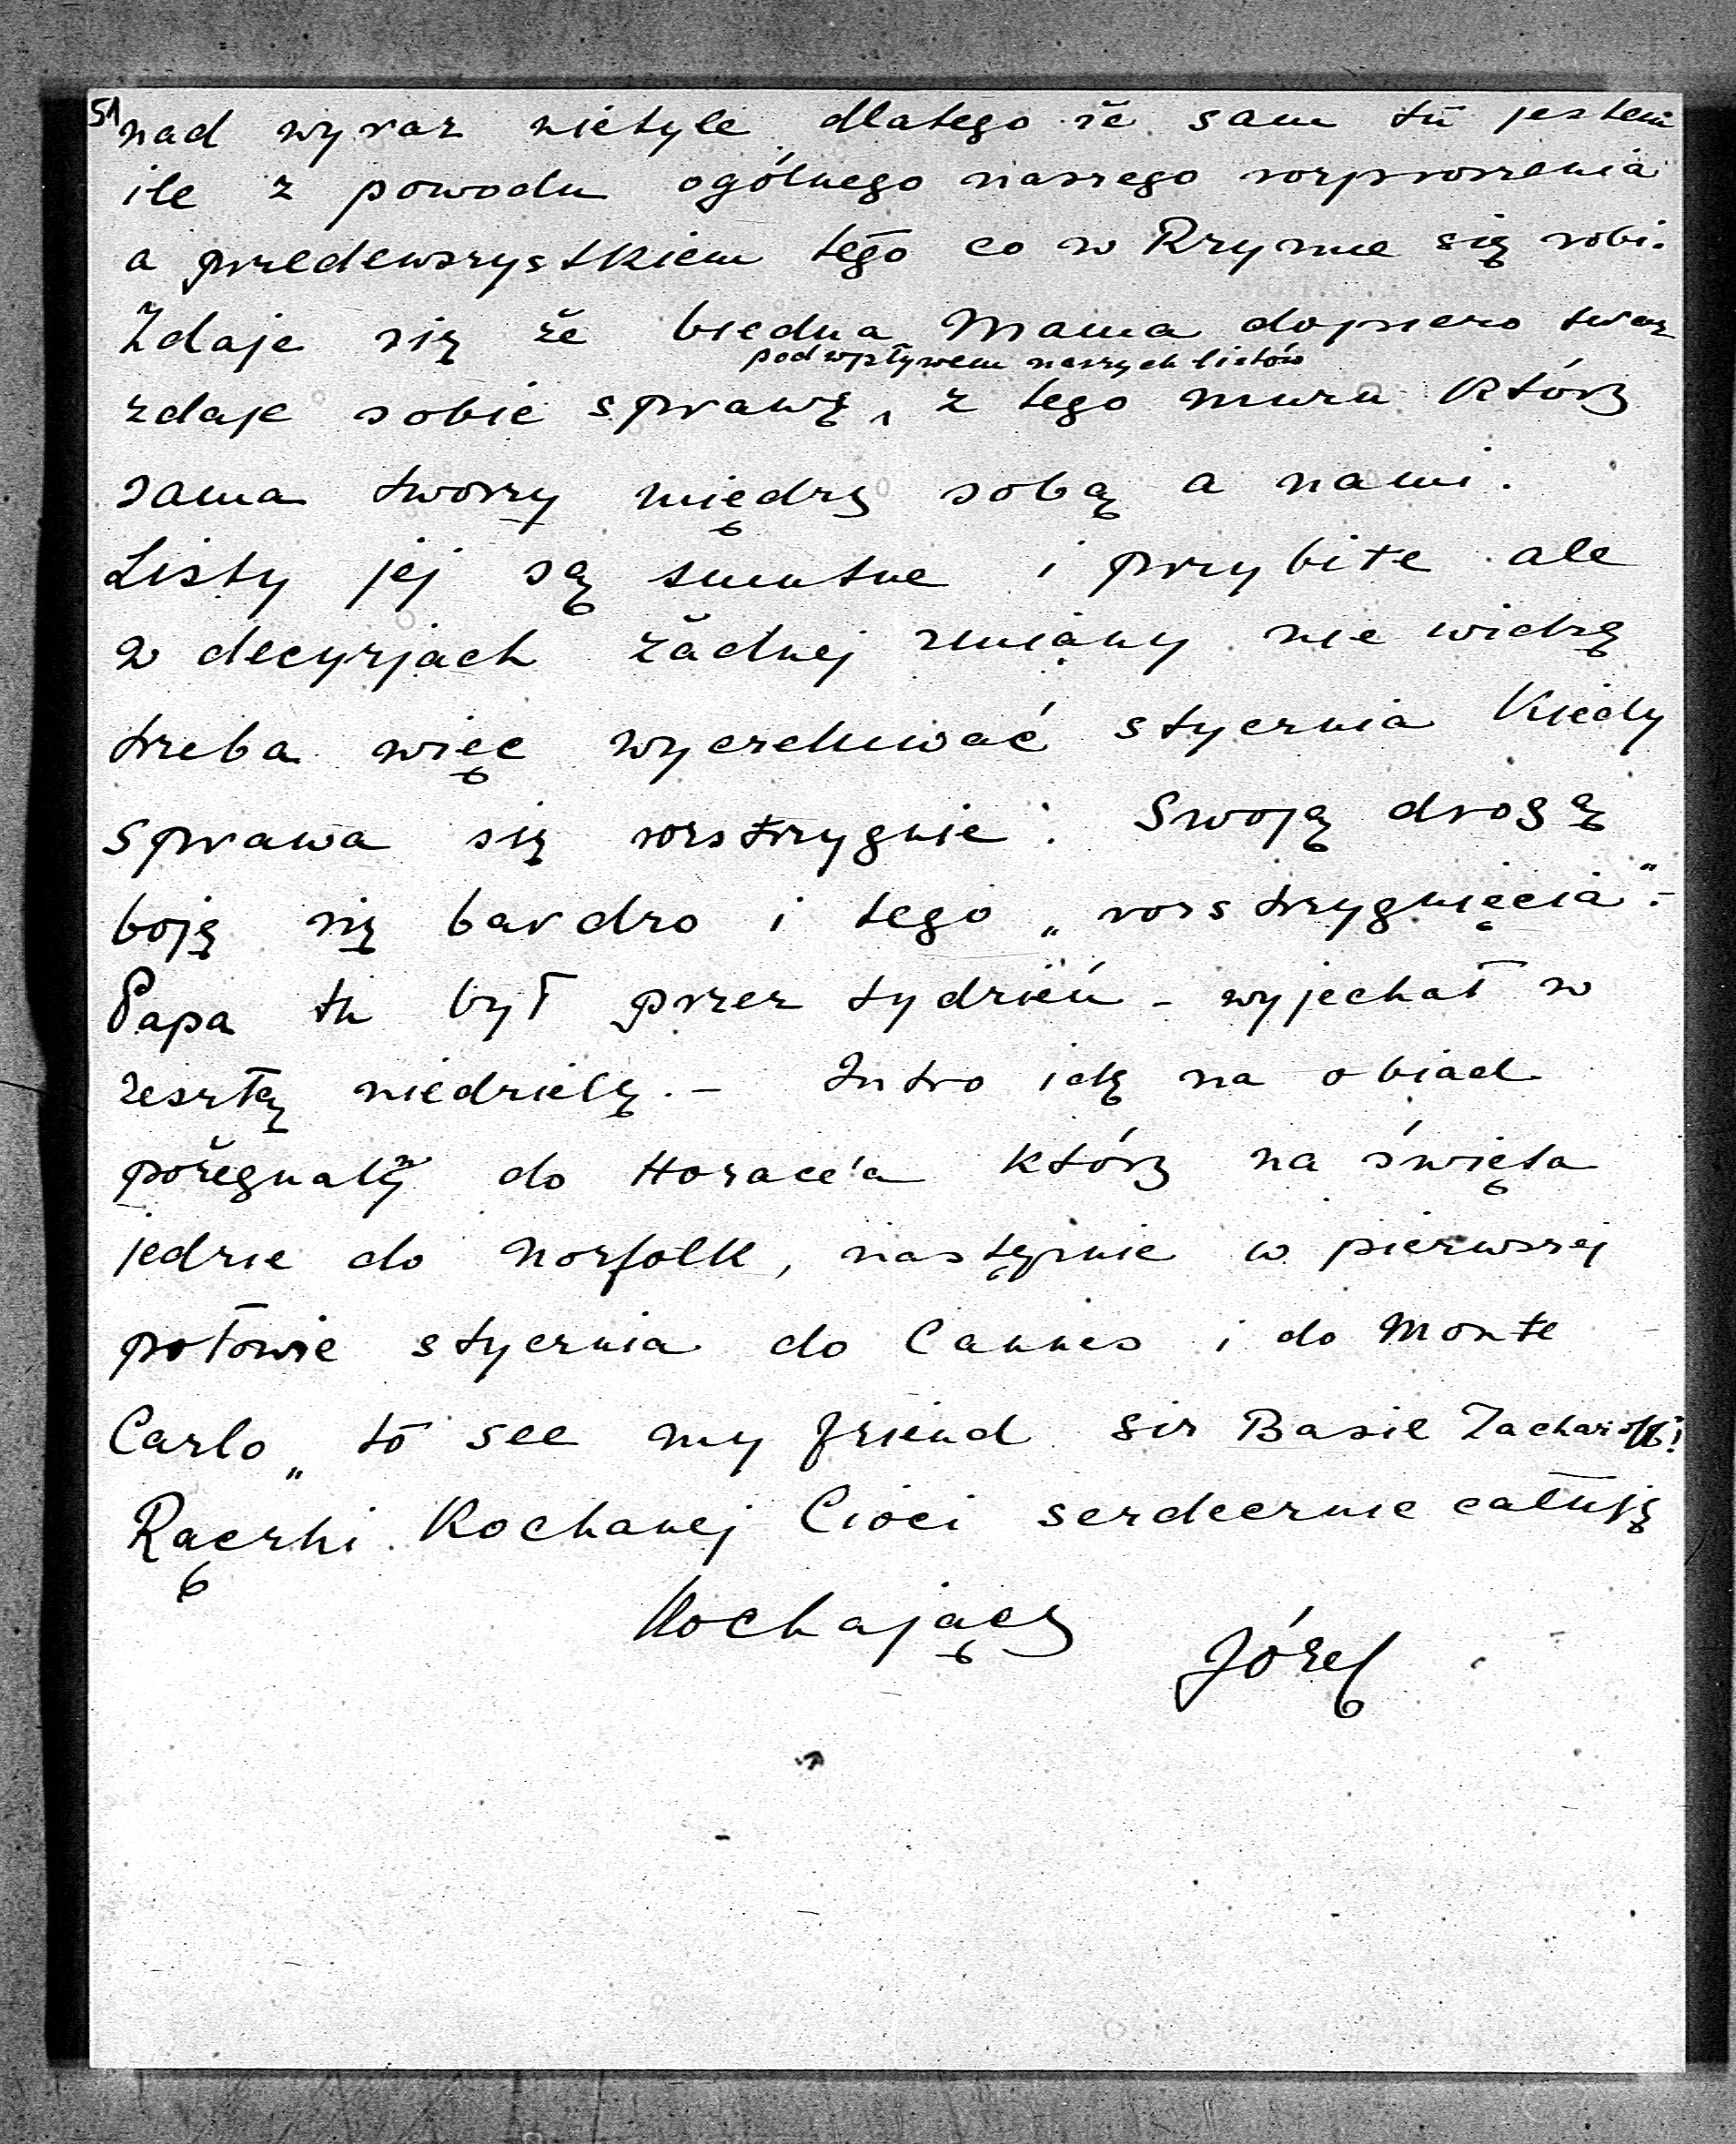 51
nad wyraz nietyle dlatego že sam tu jestem
ile z powodu ogólnego naszego rozproszenia
a przedewszystkiem tego co w Rzymie się robi.
Zdaje się że biedna Mama dopiero teraz
pod wpływem naszych listów
zdaje sobie sprawę, z tego muru który
sama tworzy między sobą a nami.
Listy jej są smutne i przybite ale
w decyzjach żadnej zmiany nie widzę
trzeba więc wyczekiwać stycznia kiedy
sprawa się rozstrzygnie. Swoją drogą
boję się bardzo i tego „rozstrzygnięcia".-
Papa tu był przez tydzień - wyjechał w
zeszłą niedzielę. - Jutro idę na obiad
pożegnalny do Horace'a który na święta
jedzie do Norfolk, następnie w pierwszej
połowie stycznia do Cannes i do Monte
Carlo „to see my friend sir Basil Zacharoff"!
Rączki Kochanej Cioci serdecznie całuję
Kochający
Józef